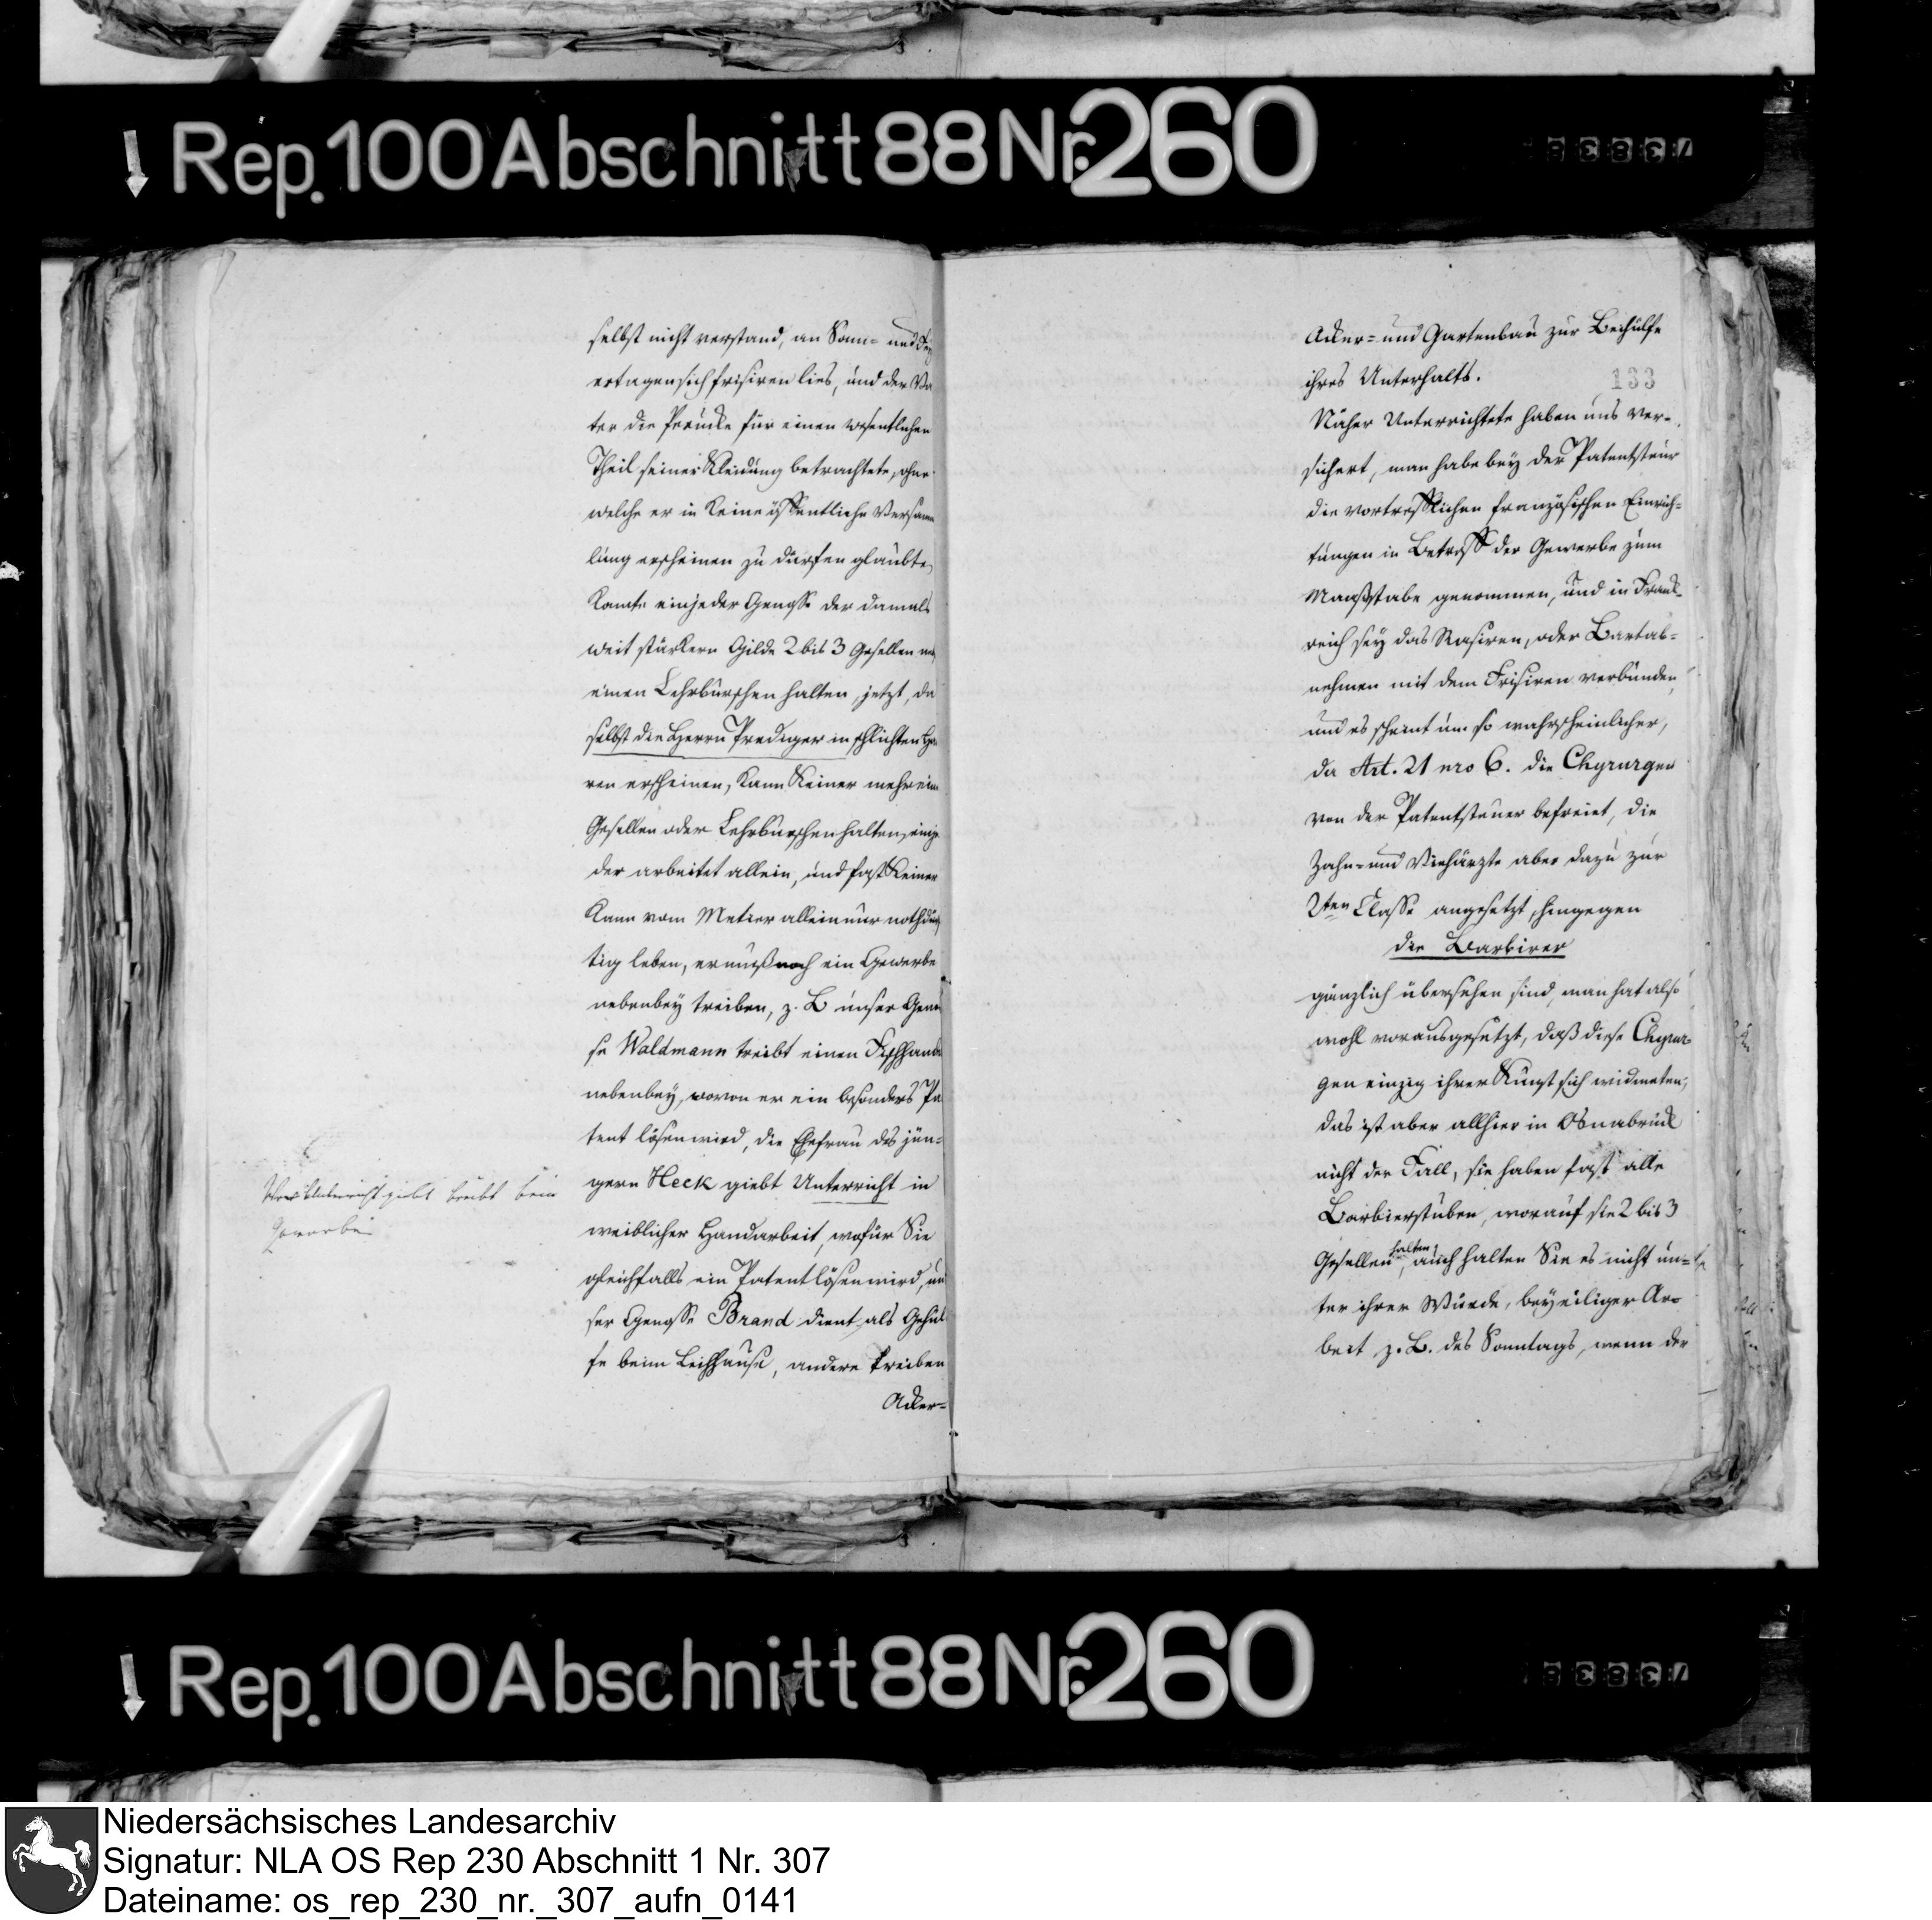 Rep. 100 Abschnitt 88 Nr. 260
73838
selbst nicht verstand, an Sonn= und Fey
ertagen sich frisiren lies, und der Va
ter die Peruͤcke fuͤr einen wesentlichen
Theil seiner Kleidung betrachtete, ohne
welche er in keine oͤffentliche Versam
lung erscheinen zu duͤrfen glaubte,
konte einjeder Genosse der damals
weit staͤrkern Gilde 2 bis 3 Gesellen und
einen Lehrburschen halten, jetzt, da
selbst die Herrn Prediger in schlichten Ha
ren erscheinen, kann Keiner mehr ein
Gesellen oder Lehrburschen halten, einje
der arbeitet allein, und fast Keiner
kann vom Metier allein nur nothduͤrf
tig leben, er muß noch ein Gewerbe
nebenbey treiben, z. B unser Genos
se Waldmann treibt einen Fischhandel
nebenbey, wovon er ein besonders Pa
tent loͤsen wird, die Ehefrau des juͤn=
gern Heck giebt Unterricht in
weiblicher Handarbeit, wofuͤr Sie
gleichfalls ein Patent loͤsen wird, un
ser Genosse Brand dient als Gehuͤl
fe beim Leihhause, andere treiben
Acker=
Wer Unterricht giebt treibt kein
Gewerbe
133
Acker= und Gartenbau zur Beihuͤlfe
ihres Unterhalts.
Naͤher Unterrichtete haben uns ver=
sichert, man habe bey der Patentsteur
die vortrefflichen franzoͤsischen Einrich=
tungen in Betreff der Gewerbe zum
Maaßstabe genommen, und in Frank=
reich sey das Rasiren, oder Bartab=
nehmen mit dem Frisiren verbunden,
und es scheint um so wahrscheinlicher,
da Art. 21 nro 6. die Chyrurgen
von der Patentsteuer befreiet, die
Zahn= und Viehaͤrzte aber dazu zur
2ten Classe angesetzt, hingegen
die Barbirer
gaͤnzlich uͤbersehen sind, man hat also
wohl vorausgesetzt, daß diese Chyrur=
gen einzig ihrer Kunst sich widmeten,
das ist aber allhier in Osnabruͤck
nicht der Fall, sie haben fast alle
Barbierstuben, worauf sie 2 bis 3
Gesellen halten, auch halten Sie es nicht un=
ter ihrer Wuͤrde, bey eiliger Ar=
beit z. B. des Sonntags, wenn der
Rep. 100 Abschnitt 88 Nr. 260
73838
Niedersächsisches Landesarchiv
Signatur: NLA OS Rep 230 Abschnitt 1 Nr. 307
Dateiname: os_rep_230_nr._307_aufn_0141